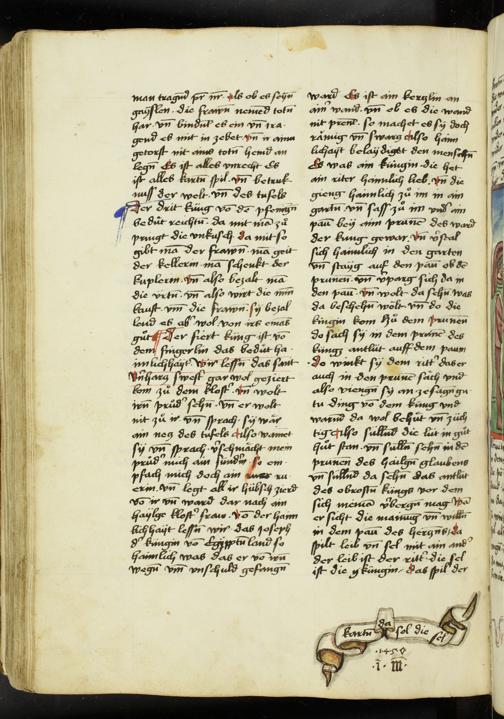 man tragnd
als ob es sehn
die frawn nemed totn
har vn bindut es em vn tra
gend es mit
getorst nit ains totn hend an
legn Es ist alles vnrecht Es
ist alles kartn spil vn betruk
nuss der welt vn des tufels
Der drit kung vo de pfennign
bedut rechtn da mit ma zu
pringt die vnkusch da mit so
gibt ma der frawn ma geit
der kellerin ma schenkt der
kuplerin vn also bezalt ma
die vrtn vn also wirt die min
kauft vnn die frawn sy bezal
lend es ab wol von irs emas
gut Der fiert king ist vo
dem fingerlin das bedut ha
imlichhayt wir lessn das sant
swest gar wol geziert
kom zu dem klost vn wolt
irn prud sehn vn er wolt
nit zu ir vn sprach sy wär
ain neg des tufels also wainet
sy vn sprach verschmacht mein
prud mich ain sundin so em
pfach mich doch ain ru
erin vn legt all ir hubsch zierd
vo ir vn ward dar nach ain
haylge klost fraw Vo der haim
lichhayt lessn wir das Joseph
d kungin vo Egipptn land so
haimlich was das er vo irn
wegn vnn vnschuld gefangn
ward Es ist ain kerzlin an
ain wand vn ob es die wand
nit prent so machet es sy doch
ramig vn swarz also haim
lichayt belaydiget den menschn
Es was ain kungin die het
ain riter haimlich lieb vn die
gieng haimlich zu im in ain
gartn vn sass zu im vnd ain
paum bey aim prunen des ward
der kung gewar vn verstal
sich haimlich in den garten
vn stayg auf den paum ob de
prunen vn verparg sich da in
den paum vn wolt da sehn was
da beschehn wolt vn do die
kingin kom zu dem prunen
do sach sy in dem prunen des
kings antlut auff dem paum
do winkt sy dem ritt das er
auch in den prunen sach vnd
also viengn sy an zesagn gu
tu ding vo dem king vnd
warnd da wol behut vn zuch
tig Also sullnd die lut in gut
hut sten vn sulln sehn in de
prunen des hailign glaubens
vn sullnd da sehn das antlut
des obrostn kings vor dem
sich menia verborgn mag wa
er sicht die mainug vn willn
in dem paum des herzns da
spilt leib vn sel mit ain and
der leib ist der ritt die sel
ist die kungin das spil der
kartn da sol die sel
1450
· I · M ·